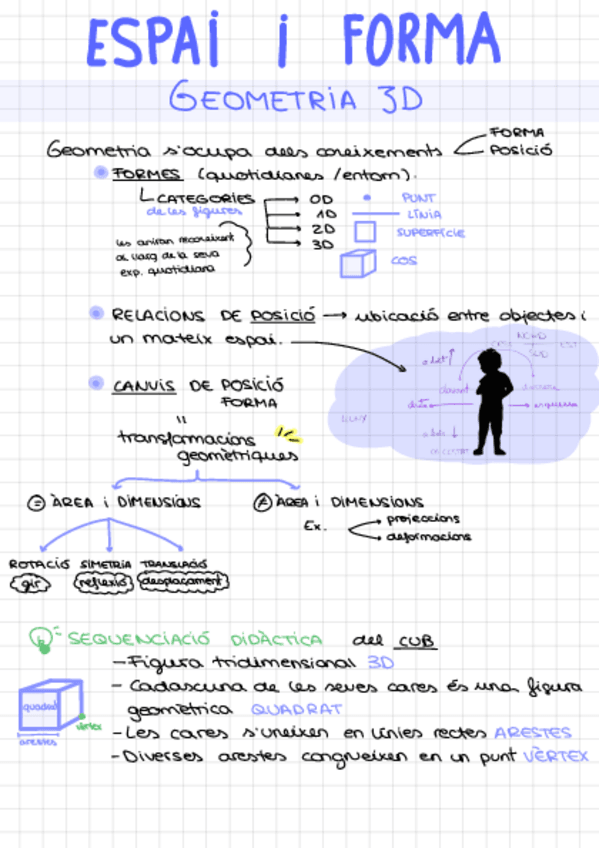 ESPAI i FORMA
GEOMETRIA 3D
Geometria s'ocupa dels coneixements
FORMA
POSICIÓ
FORMES (quotidianes /entorn).
CATEGORIES
de les figures
les aniran reconeixent
al llarg de la seva
exp. quotidiana
0D PUNT
1D LÍNIA
2D SUPERFÍCIE
3D COS
RELACIONS DE POSICIÓ → ubicació entre objectes i
un mateix espai.
NORD
EST
SUD
a dalt
davant
darrere
dreta
esquerra
a baix
LLUNY
CANVIS DE POSICIÓ
FORMA
=
transformacions
geomètriques
= ÀREA i DIMENSIONS
≠ ÀREA i DIMENSIONS
Ex.
projeccions
deformacions
ROTACIÓ SIMETRIA TRANSLACIÓ
gir reflexió desplaçament
SEQUENCIACIÓ DIDÀCTICA del CUB
-Figura tridimensional 3D
- Cadascuna de les seves cares és una figura
geomètrica QUADRAT
-Les cares s'uneixen en línies rectes ARESTES
-Diverses arestes congrueixen en un punt VÈRTEX
quadrat
vèrtex
arestes